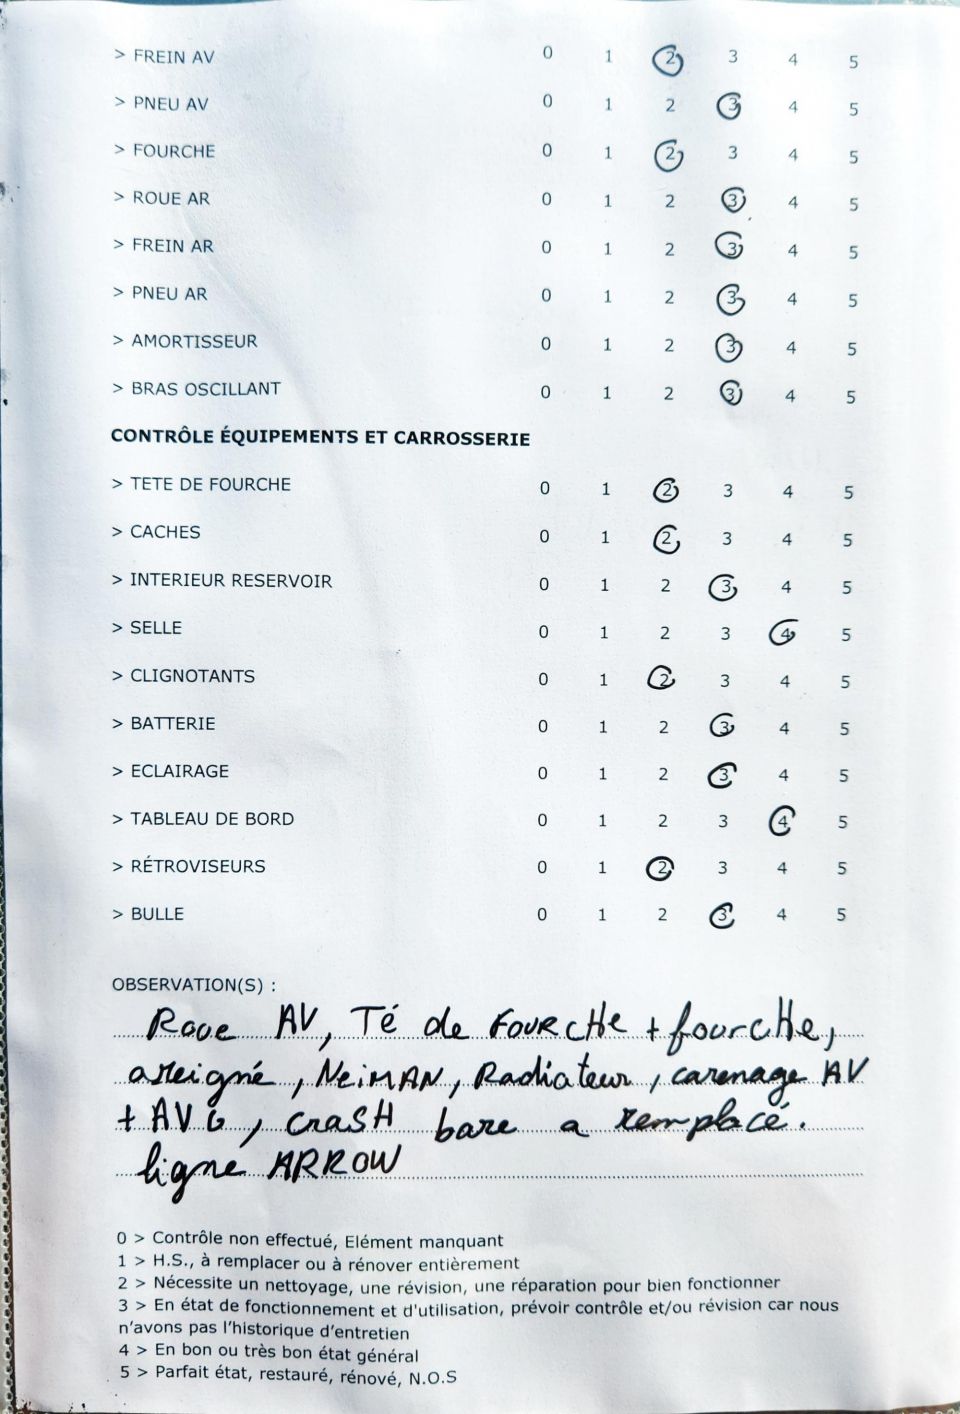 > FREIN AV 0 1 2 3 4 5
> PNEU AV 0 1 2 3 4 5
> FOURCHE 0 1 2 3 4 5
> ROUE AR 0 1 2 3 4 5
> FREIN AR 0 1 2 3 4 5
> PNEU AR 0 1 2 3 4 5
> AMORTISSEUR 0 1 2 3 4 5
> BRAS OSCILLANT 0 1 2 3 4 5
CONTRÔLE ÉQUIPEMENTS ET CARROSSERIE
> TETE DE FOURCHE 0 1 2 3 4 5
> CACHES 0 1 2 3 4 5
> INTERIEUR RESERVOIR 0 1 2 3 4 5
> SELLE 0 1 2 3 4 5
> CLIGNOTANTS 0 1 2 3 4 5
> BATTERIE 0 1 2 3 4 5
> ECLAIRAGE 0 1 2 3 4 5
> TABLEAU DE BORD 0 1 2 3 4 5
> RÉTROVISEURS 0 1 2 3 4 5
> BULLE 0 1 2 3 4 5
OBSERVATION(S) :
Roue AV, Té de FOURCHe + fourcHe,
, NeiMAN, Radiateur, carenage AV
+ AVG, crasH bare a remplacé.
ligne ARROW
0 > Contrôle non effectué, Elément manquant
1 > H.S., à remplacer ou à rénover entièrement
2 > Nécessite un nettoyage, une révision, une réparation pour bien fonctionner
3 > En état de fonctionnement et d'utilisation, prévoir contrôle et/ou révision car nous
n'avons pas l'historique d'entretien
4 > En bon ou très bon état général
5 > Parfait état, restauré, rénové, N.O.S